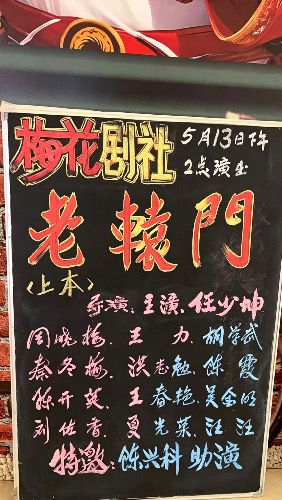 梅花剧社
5月13日下午
2点演出
老辕門
〈上本〉
导演:王演、任少坤
周晓梅、王 力、胡学武
秦冬梅、洪老勉、陈 霞
陈开英、王春艳、吴金明
刘佐香、夏光荣、汪 汪
特邀:陈兴科 助演